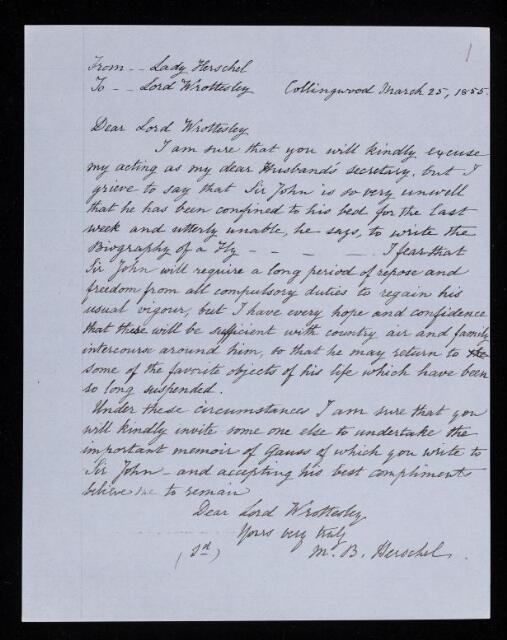 1
From -- Lady Herschel
To -- Lord Wrottesley Collingwood March 25, 1855.
Dear Lord Wrottesley
I am sure that you will kindly excuse
my acting as my dear Husband's secretary, but I
grieve to say that Sir John is so very unwell
that he has been confined to his bed for the last
week and utterly unable, he says, to write the
Biography of a Fly - - - - I fear that
Sir John will require a long period of repose and
freedom from all compulsory duties to regain his
usual vigour, but I have every hope and confidence
that these will be sufficient with country air and family
intercourse around him, so that he may return to the
some of the favorite objects of his life which have been
so long suspended.
Under these circumstances I am sure that you
will kindly invite some one else to undertake the
important memoir of Gauss of which you write to
Sir John - and accepting his best compliments
believe me to remain
Dear Lord Wrottesley
Yours very truly
(sd) M. B. Herschel.